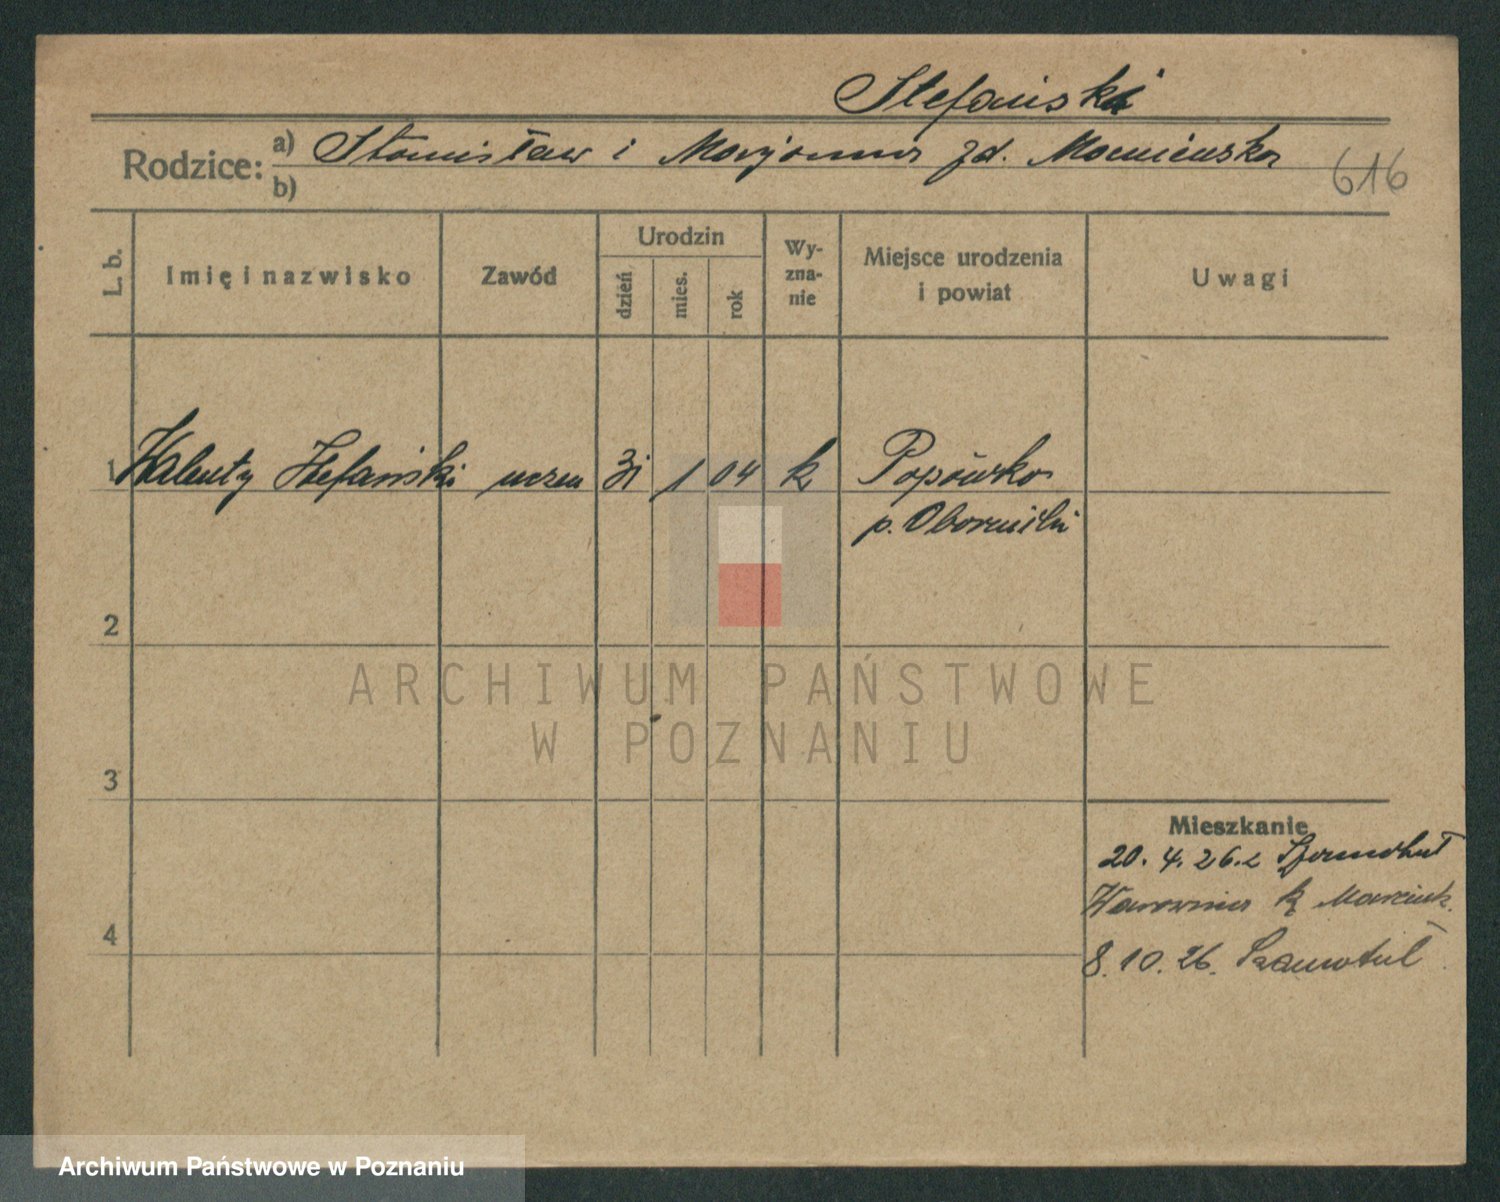 Stefański
Rodzice: a) Stanisław i Maryanna zd.
b)
616
L. b.
Imię i nazwisko
Zawód
Urodzin
dzień
mies.
rok
Wy-
zna-
nie
Miejsce urodzenia
i powiat
Uwagi
1 Walenty Stefański uczeń 31 1 04 k Popówko
p. Oborniki
2
ARCHIWUM PAŃSTWOWE
W POZNANIU
3
Mieszkanie
20. 4. 26. z
4
8. 10. 26. Szamotuł
Archiwum Państwowe w Poznaniu